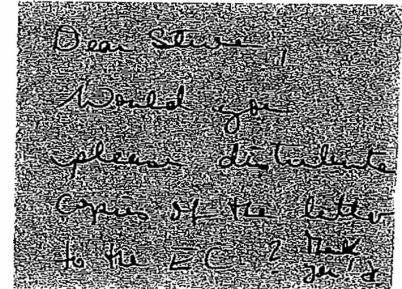 Dear Steve,
Would you
please distribute
copies of the letter
to the EC ? Thank
you